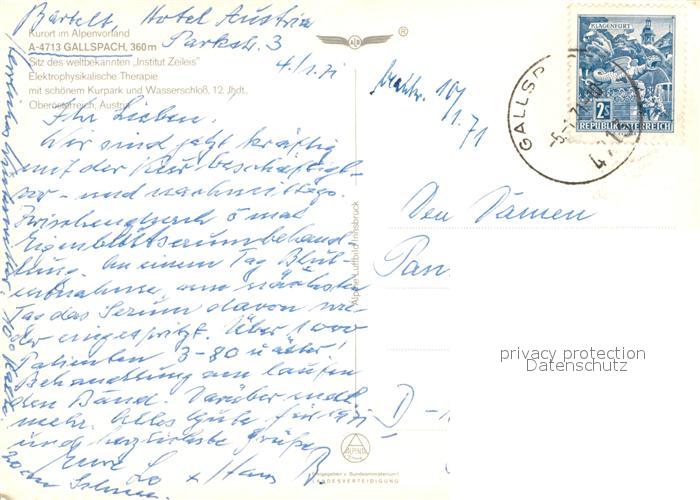 Bartelt, Hotel Austria
Parkstr. 3
4./1.71
Kurort im Alpenvorland
A-4713 GALLSPACH, 360 m
Sitz des weltbekannten „Institut Zeileis"
Elektrophysikalische Therapie
mit schönem Kurpark und Wasserschloß, 12. Jhdt.,
Oberösterreich, Austria
Ihr Lieben.
Wir sind jetzt kräftig
mit der Kur beschäftigt
vor- und nachmittags.
Zwischendurch 5 mal
Eigenblutserumbehand-
lung. An einem Tag Blut-
entnahme, am nächsten
Tag das Serum davon wie-
der eingespritzt. Über 1000
Patienten 3-80 u älter!
Behandlung am laufen
den Band. Darüber mdl.
mehr. Alles Gute für 1971
und herzlichste Grüße
Eure Lo + Hans B
20 cm Schnee.
10° Kälte
Alpine Luftbild Innsbruck
ALPINE
BUNDESMINISTERIUM F.
LANDESVERTEIDIGUNG
10/
1.71
KLAGENFURT
2S
REPUBLIK ÖSTERREICH
GALLSP
-5.-1.71
Den Damen
Pan
D -
privacy protection
Datenschutz